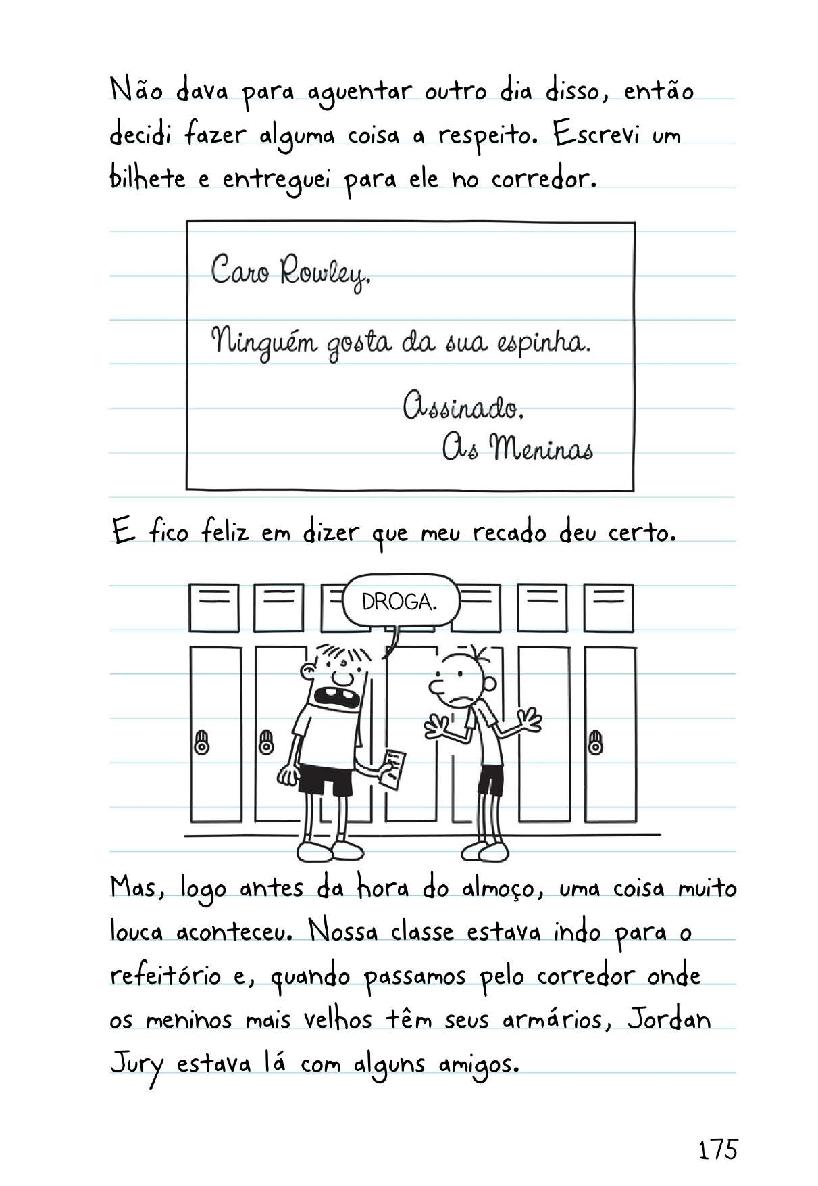 Não dava para aguentar outro dia disso, então
decidi fazer alguma coisa a respeito. Escrevi um
bilhete e entreguei para ele no corredor.
Caro Rowley,
Ninguém gosta da sua espinha.
Assinado,
As Meninas
E fico feliz em dizer que meu recado deu certo.
DROGA.
Mas, logo antes da hora do almoço, uma coisa muito
louca aconteceu. Nossa classe estava indo para o
refeitório e, quando passamos pelo corredor onde
os meninos mais velhos têm seus armários, Jordan
Jury estava lá com alguns amigos.
175